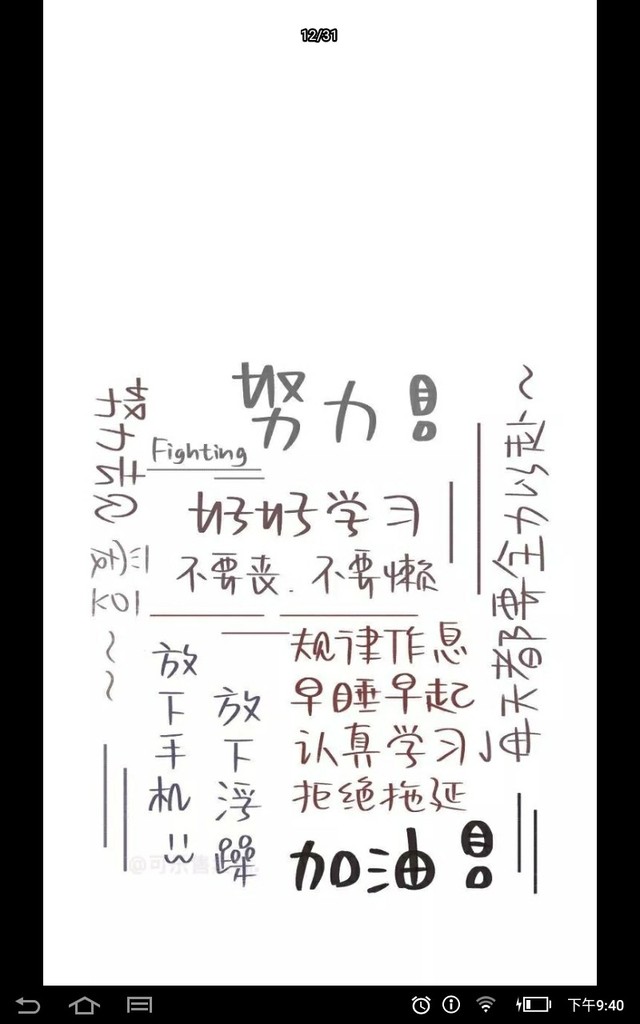 12/31
努力!
努力去见
爱豆~~
Fighting
好好学习
不要丧.不要懒
每天都要全力以赴~
规律作息
早睡早起
认真学习
拒绝拖延
放下手机
放下浮躁
加油!
下午9:40